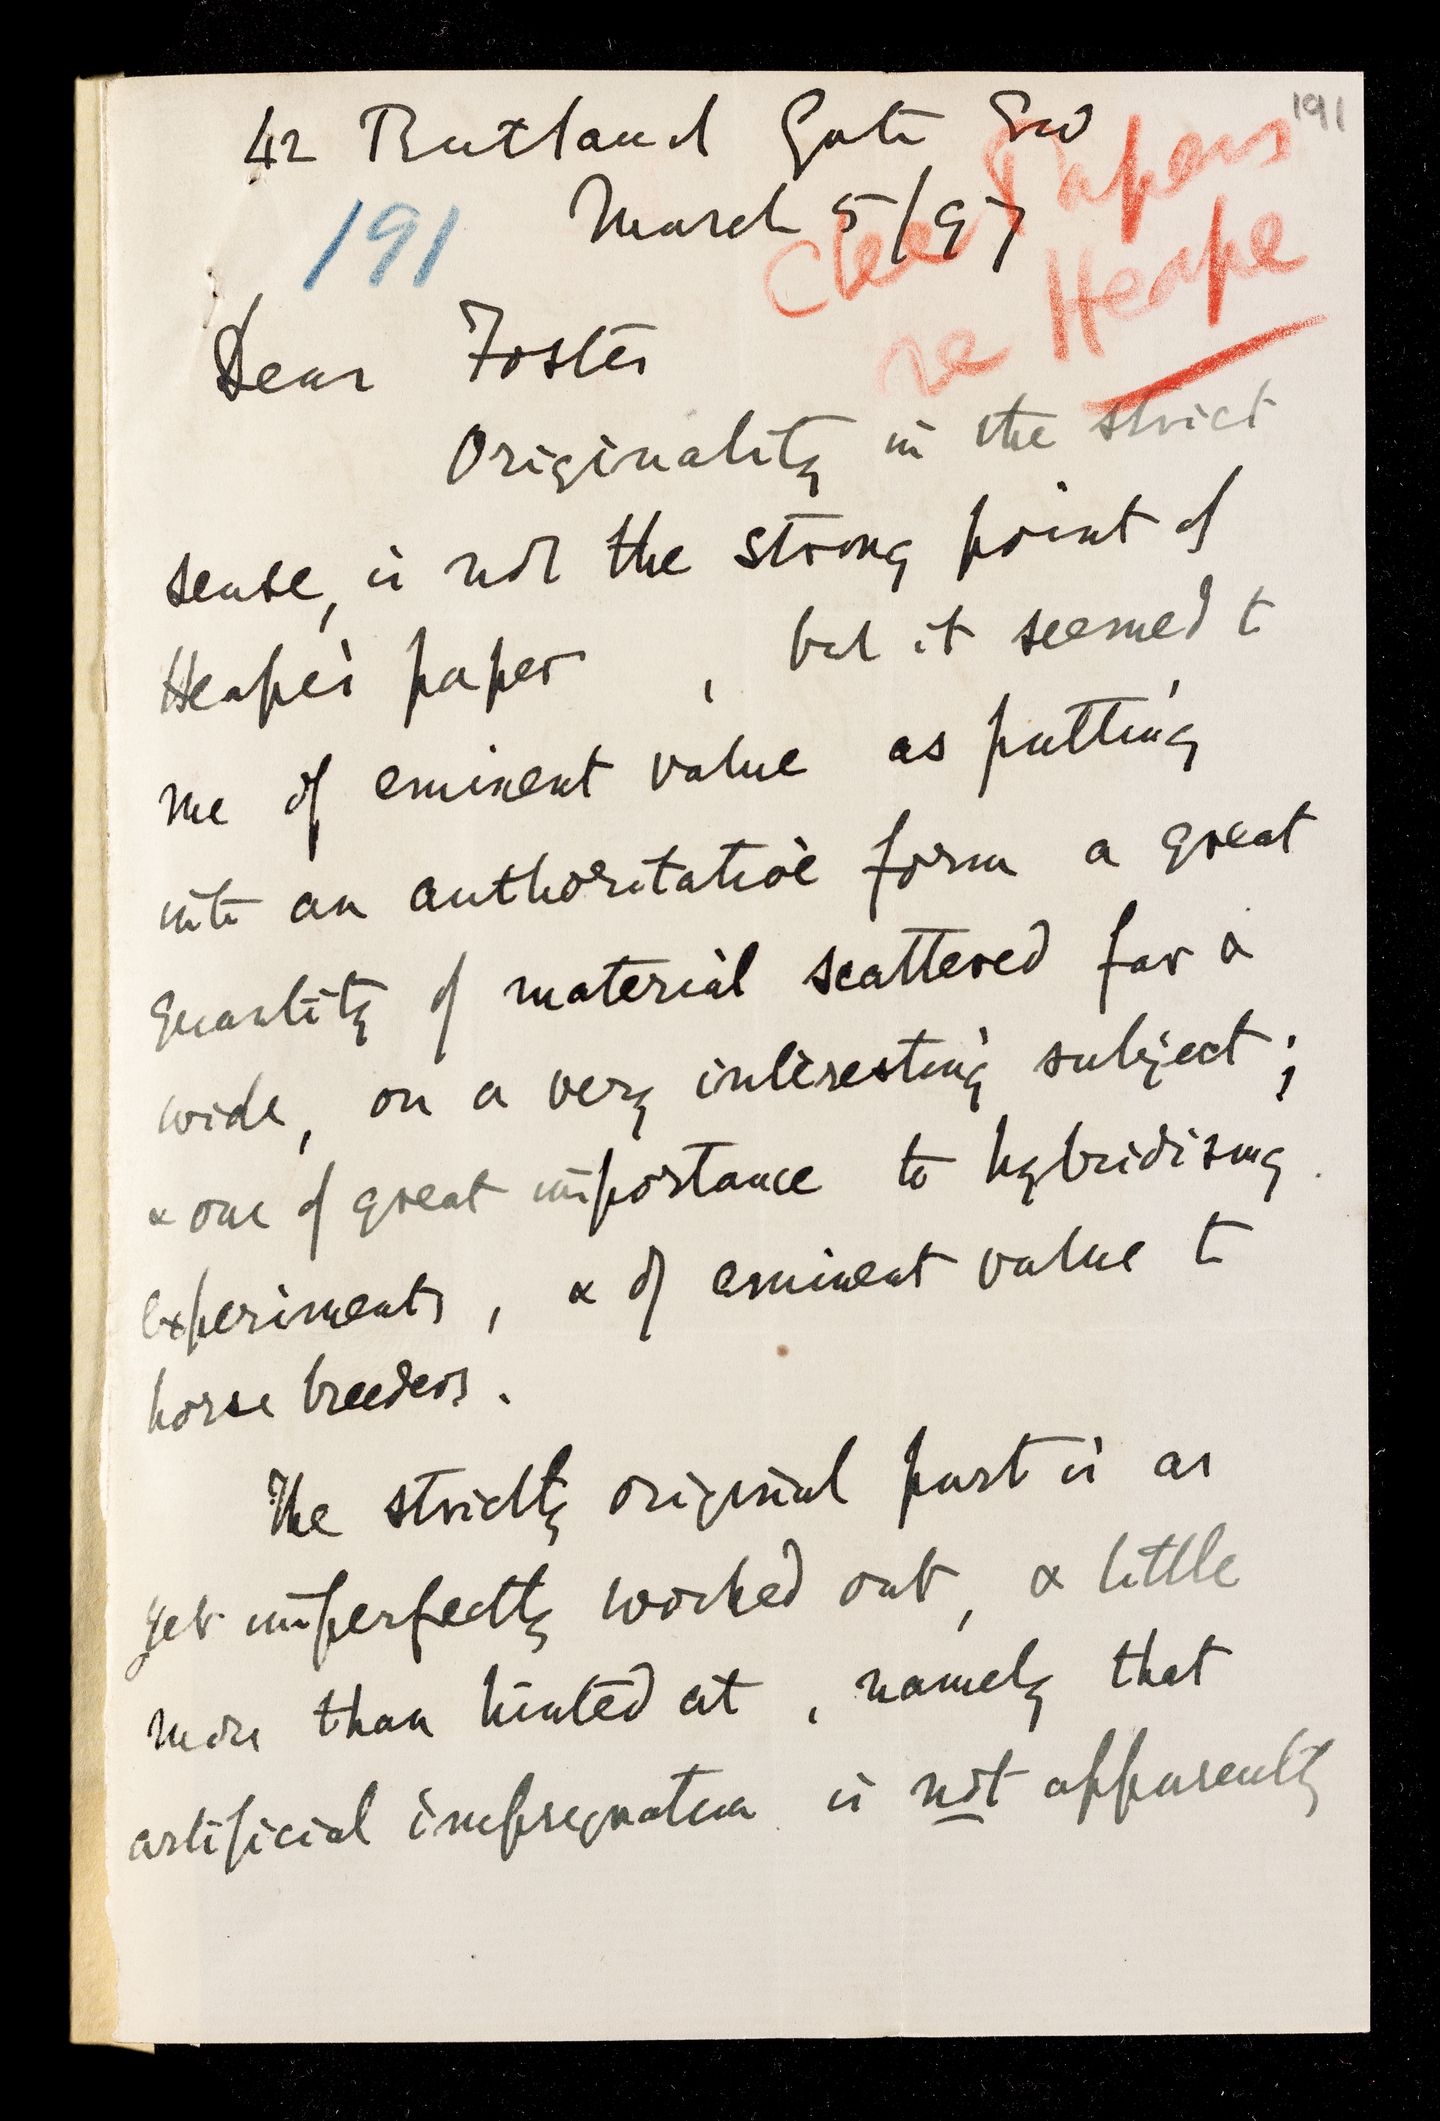 191
42 Rutland Gate SW
Papers
191 March 5/97
re Heape
Dear Foster
Originality in the strict
sense, is not the strong point of
Heape's paper , but it seemed to
me of eminent value as putting
into an authoritative form a great
quantity of material scattered far &
wide, on a very interesting subject;
& one of great importance to hybridising
experiments, & of eminent value to
horse breeders.
The strictly original part is as
yet imperfectly worked out, & little
more than hinted at, namely that
artificial impregnation is not apparently